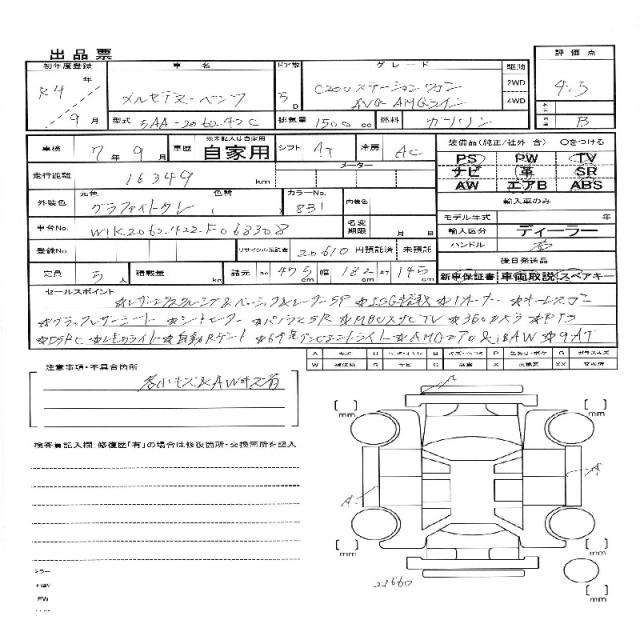 出品票
初年度登録 車名 ドア数 グレード 駆動 評価点
R4年 9月
メルセデス・ベンツ
5D
C200ステーションワゴン
AVG AMGライン
2WD
4WD
4.5
B
型式 5AA-206242C 排気量 1500cc 燃料 ガソリン
車検 7年9月 車歴 ※未記入は自家用 自家用 シフト AT 冷房 AC
装備品(純正/社外 含) ○をつける
PS PW TV
ナビ 革 SR
AW エアB ABS
走行距離 16349km メーター
外装色 元色 グラファイトグレー 色替 カラーNo. 831 内装色
輸入車のみ
モデル年式 年
車台No. W1K2062422F068308 名変期限 月 日
輸入区分 ディーラー
ハンドル 右
登録No. リサイクル預託金 20610円預託済 未預託
後日発送品
新車保証書 車両取説 スペアキー
定員 5人 積載量 kg 諸元 長さ 475cm 幅 182cm 高さ 145cm
セールスポイント
※レザーエクスクルーシブ&ベーシック&レーダーSP ※ISG搭載 ※1オーナー ※キーレスゴー
※ブラックレザーシート ※シートヒーター ※パノラマSR ※MBUXナビTV ※360°カメラ ※PTS
※DSRC ※LEDライト ※自動Rゲート ※64色アンビエントライト ※AMGエアロ&18AW ※9AT
注意事項・不具合箇所
若小キズ&AWキズ有
検査員記入欄:修復歴「有」の場合は修復箇所・交換箇所を記入
mm
mm
A
A
mm
mm
mm
23660